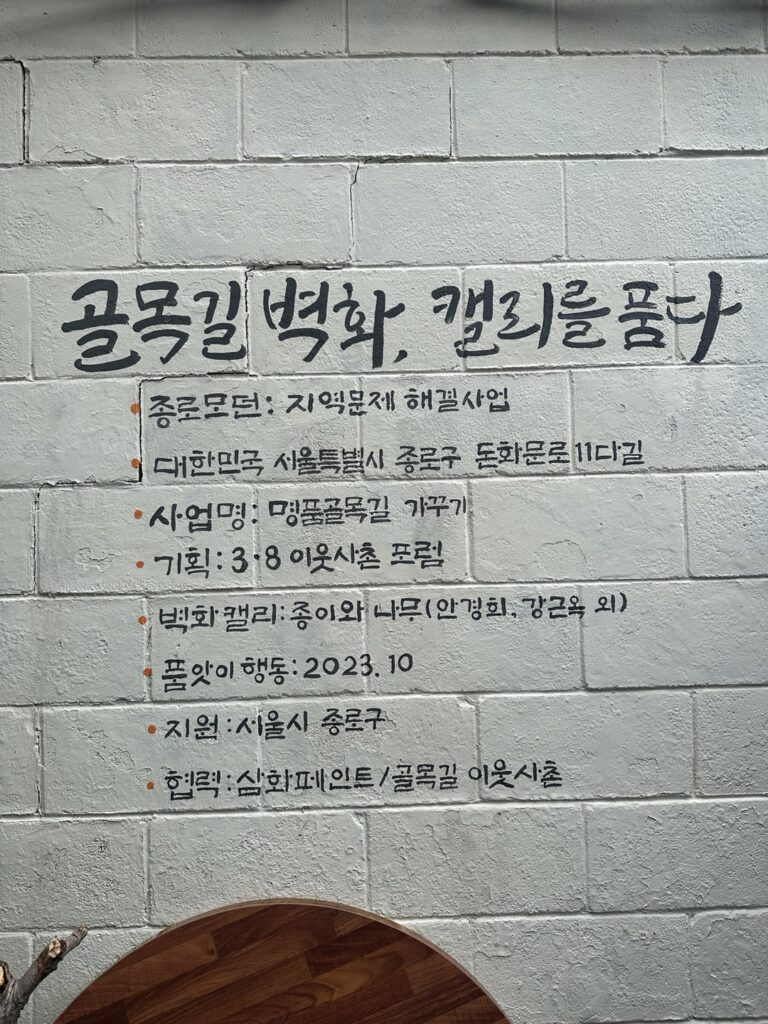 골목길 벽화, 캘리를 품다
종로모던: 지역문제 해결사업
대한민국 서울특별시 종로구 돈화문로11다길
사업명: 명품골목길 가꾸기
기획: 3·8 이웃사촌 포럼
벽화캘리: 종이와 나무(안경희, 강근옥 외)
품앗이 행동: 2023. 10
지원: 서울시 종로구
협력: 삼화페인트/골목길 이웃사촌